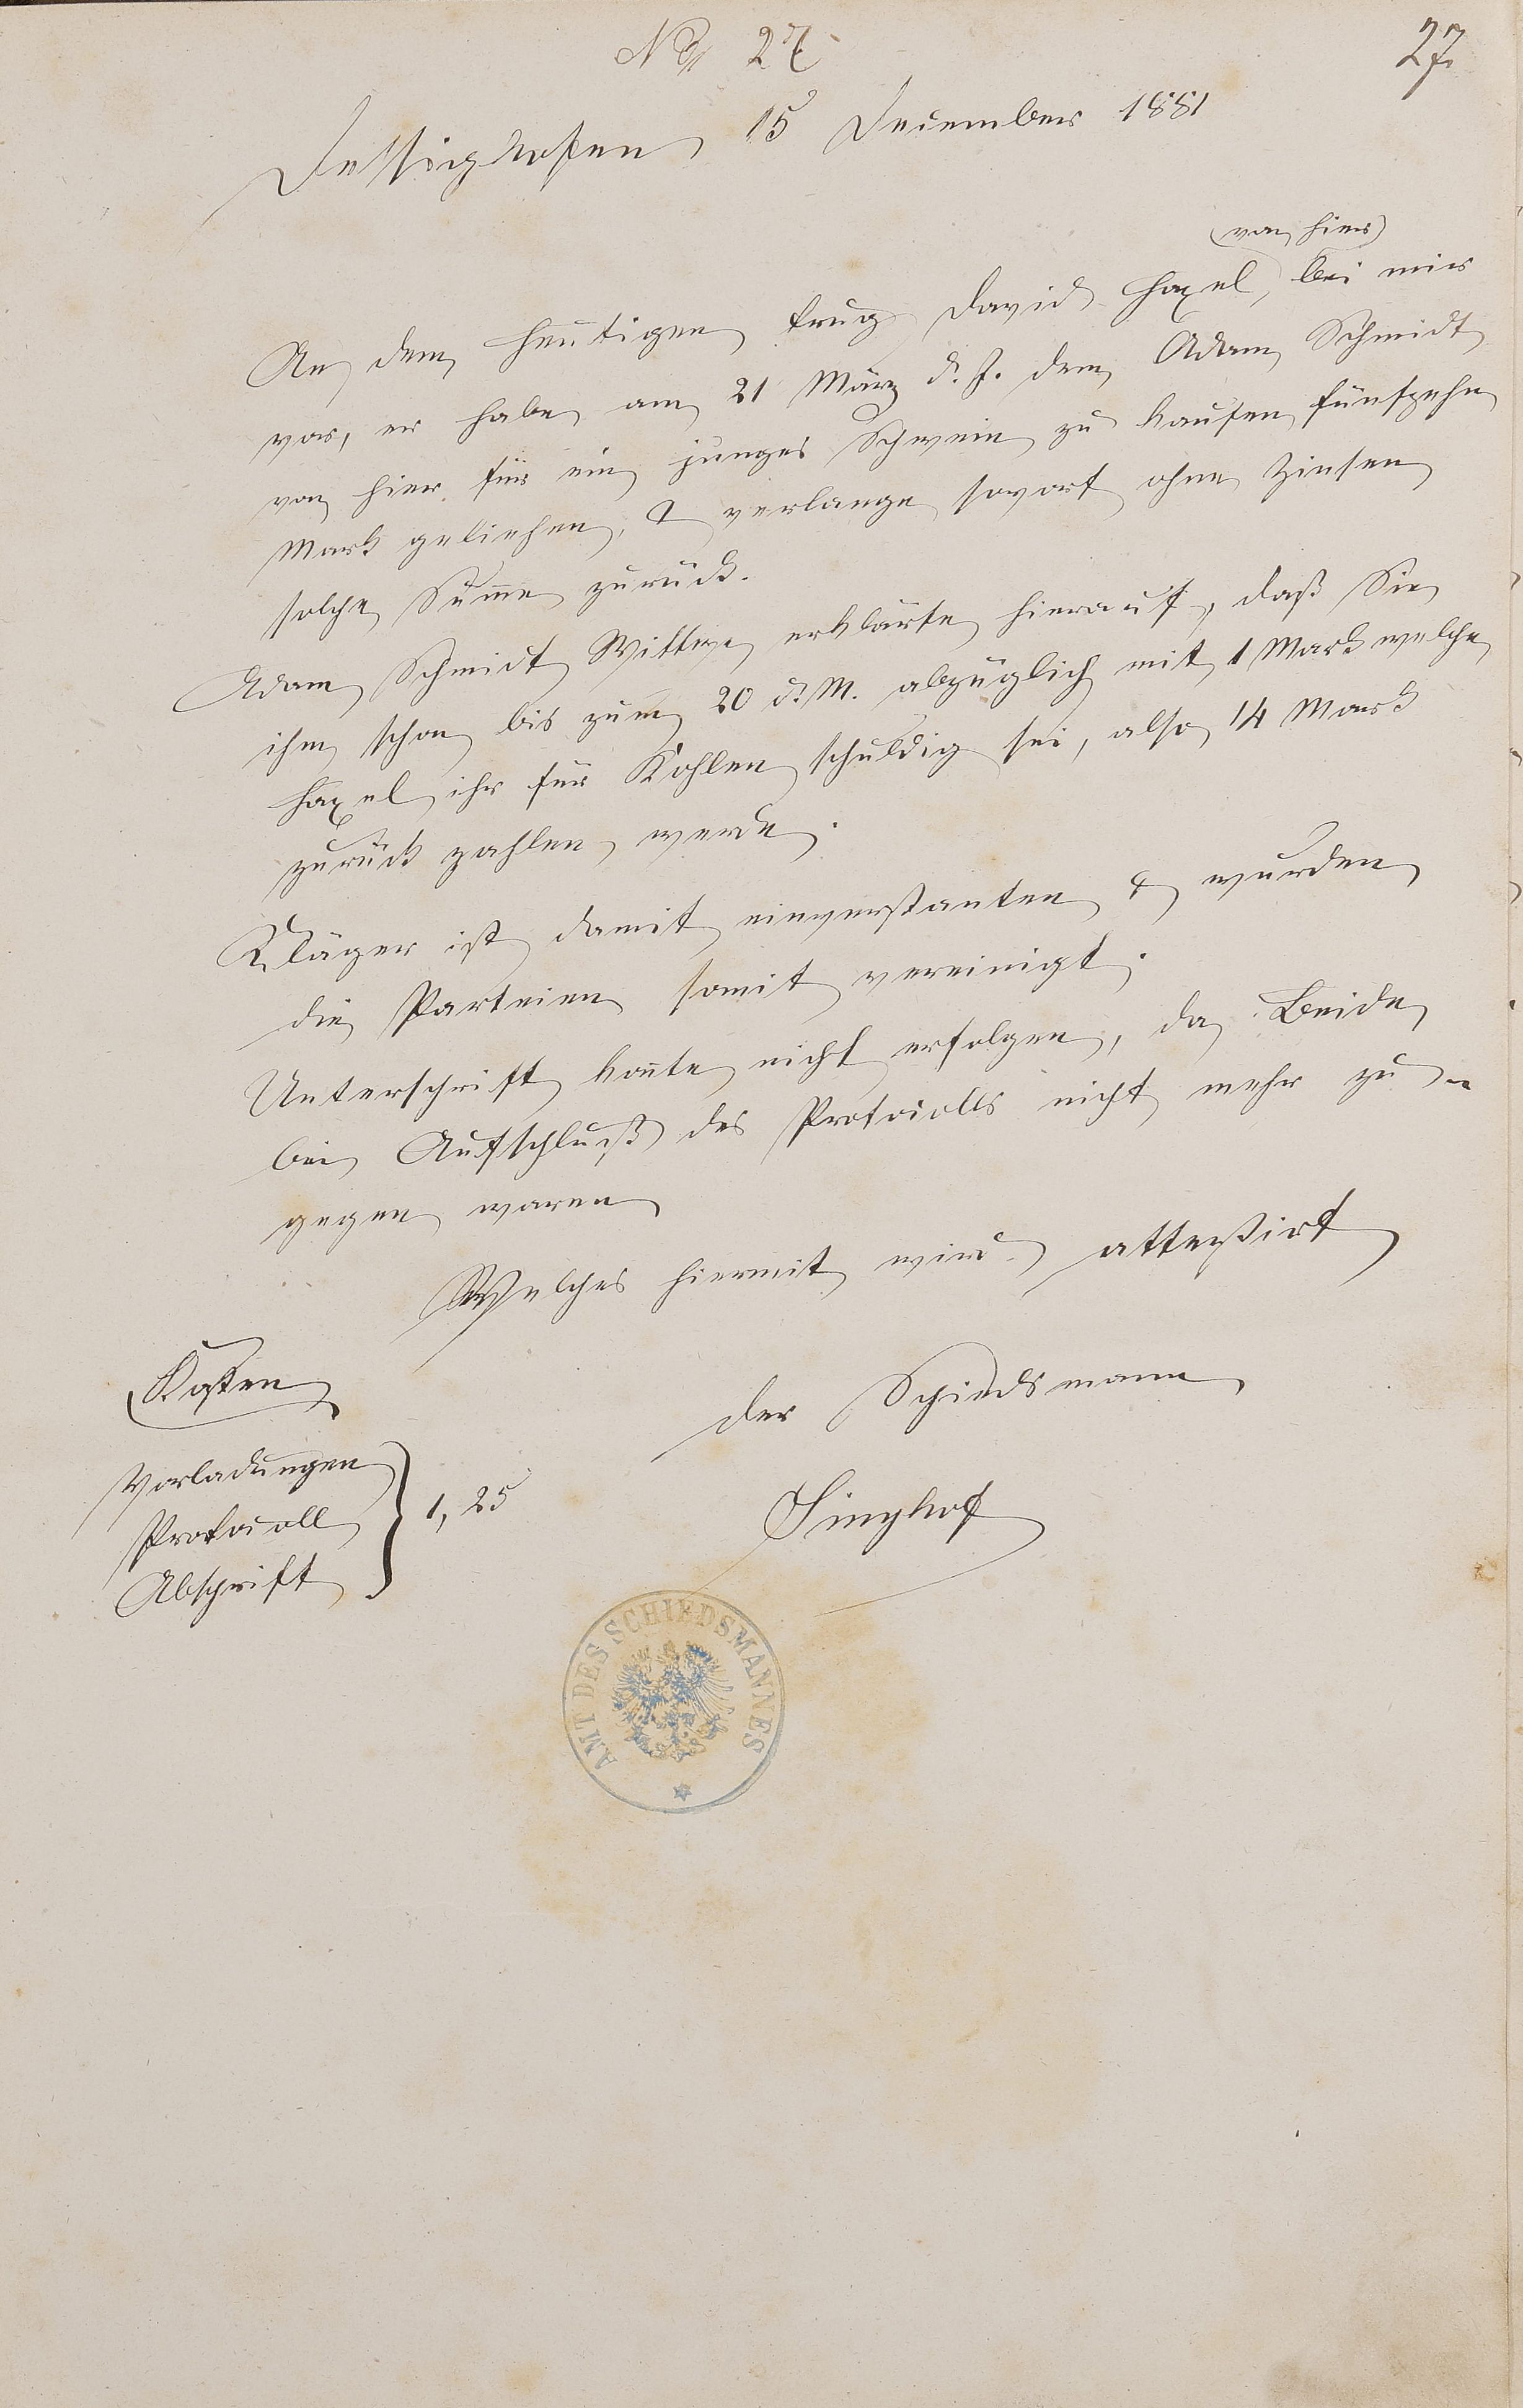 No 27
27.
Dessighofen, 15 December 1881
(von hier)
An dem heutigen trug David Haxel, bei mir
vor, er habe am 21 März d. J. dem Adam Schmidt
von hier für ein junges Schwein zu kaufen fünfzehn
Mark geliehen, & verlange sovort ohne Zinsen
solche Sum̄e zurück.
Adam Schmidt Wittwe, erklärte hierauf, daß Sie
ihm schon bis zum 20 d. M. abzüglich mit 1 Mark welche
Haxel ihr für Kohlen schuldig sei, also 14 Mark
zurück zahlen werde.
Kläger ist damit einverstanten & wurden
die Parteien somit vereinigt.
Unterschrift kon̄te nicht erfolgen, da Beide
bei Aufschluß des Protocolls nicht mehr zu-
gegen waren
Welches hiermit wird attestirt
Kosten
der Schiedsmann
Vorladungen
Protocoll
Abschrift
1,25
Singhof
AMT DES SCHIEDSMANNES